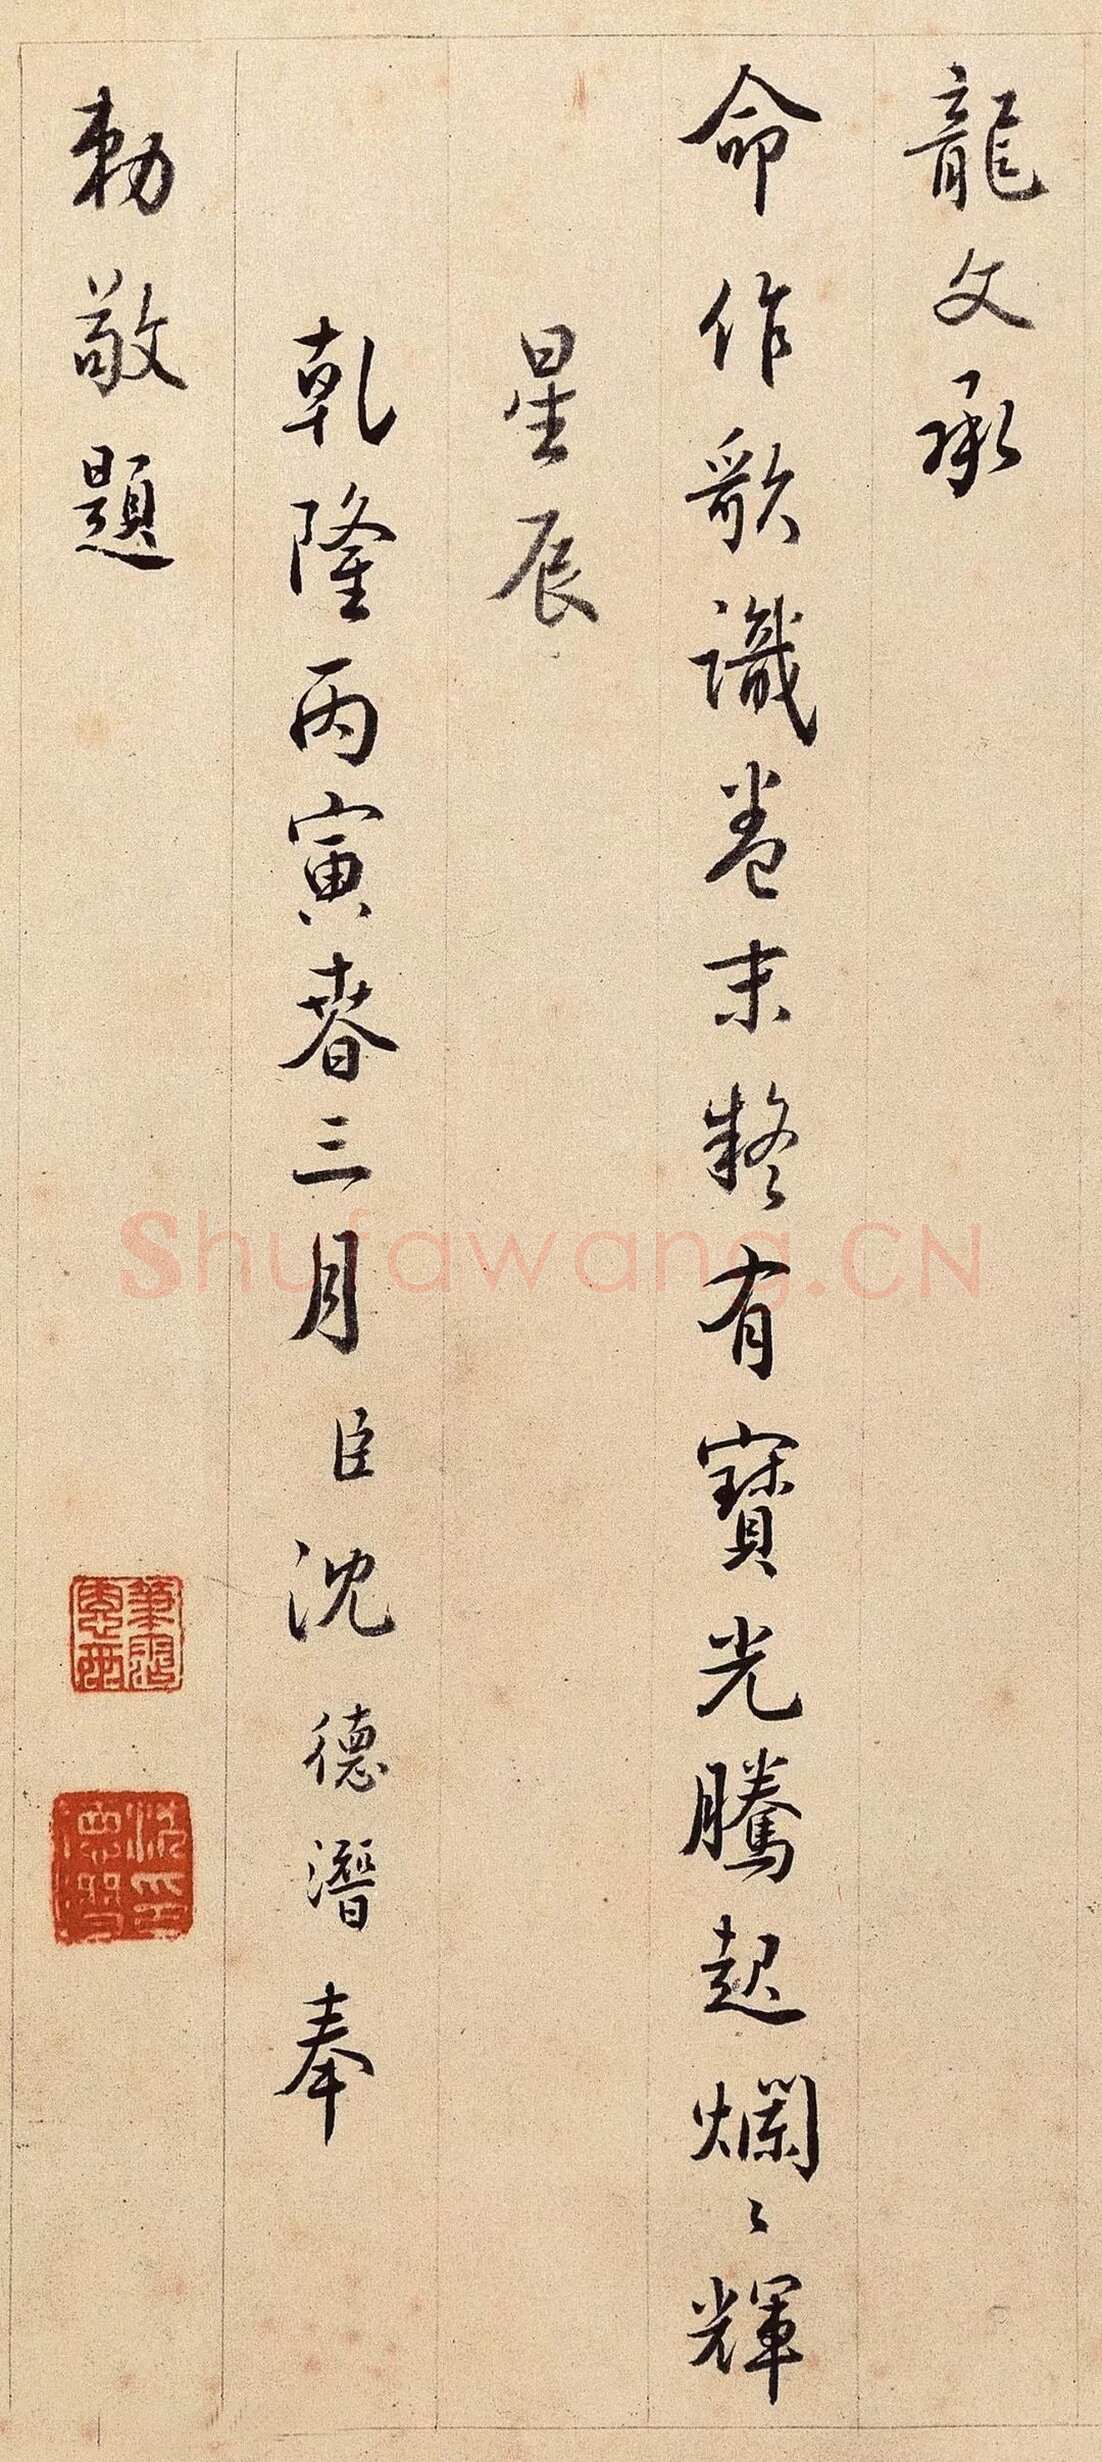 龍文承
命作歌識卷末疑有寶光騰起爛〻輝
星辰
乾隆丙寅春三月臣沈德潛奉
勅敬題
沈印德潛
Shufawang.CN